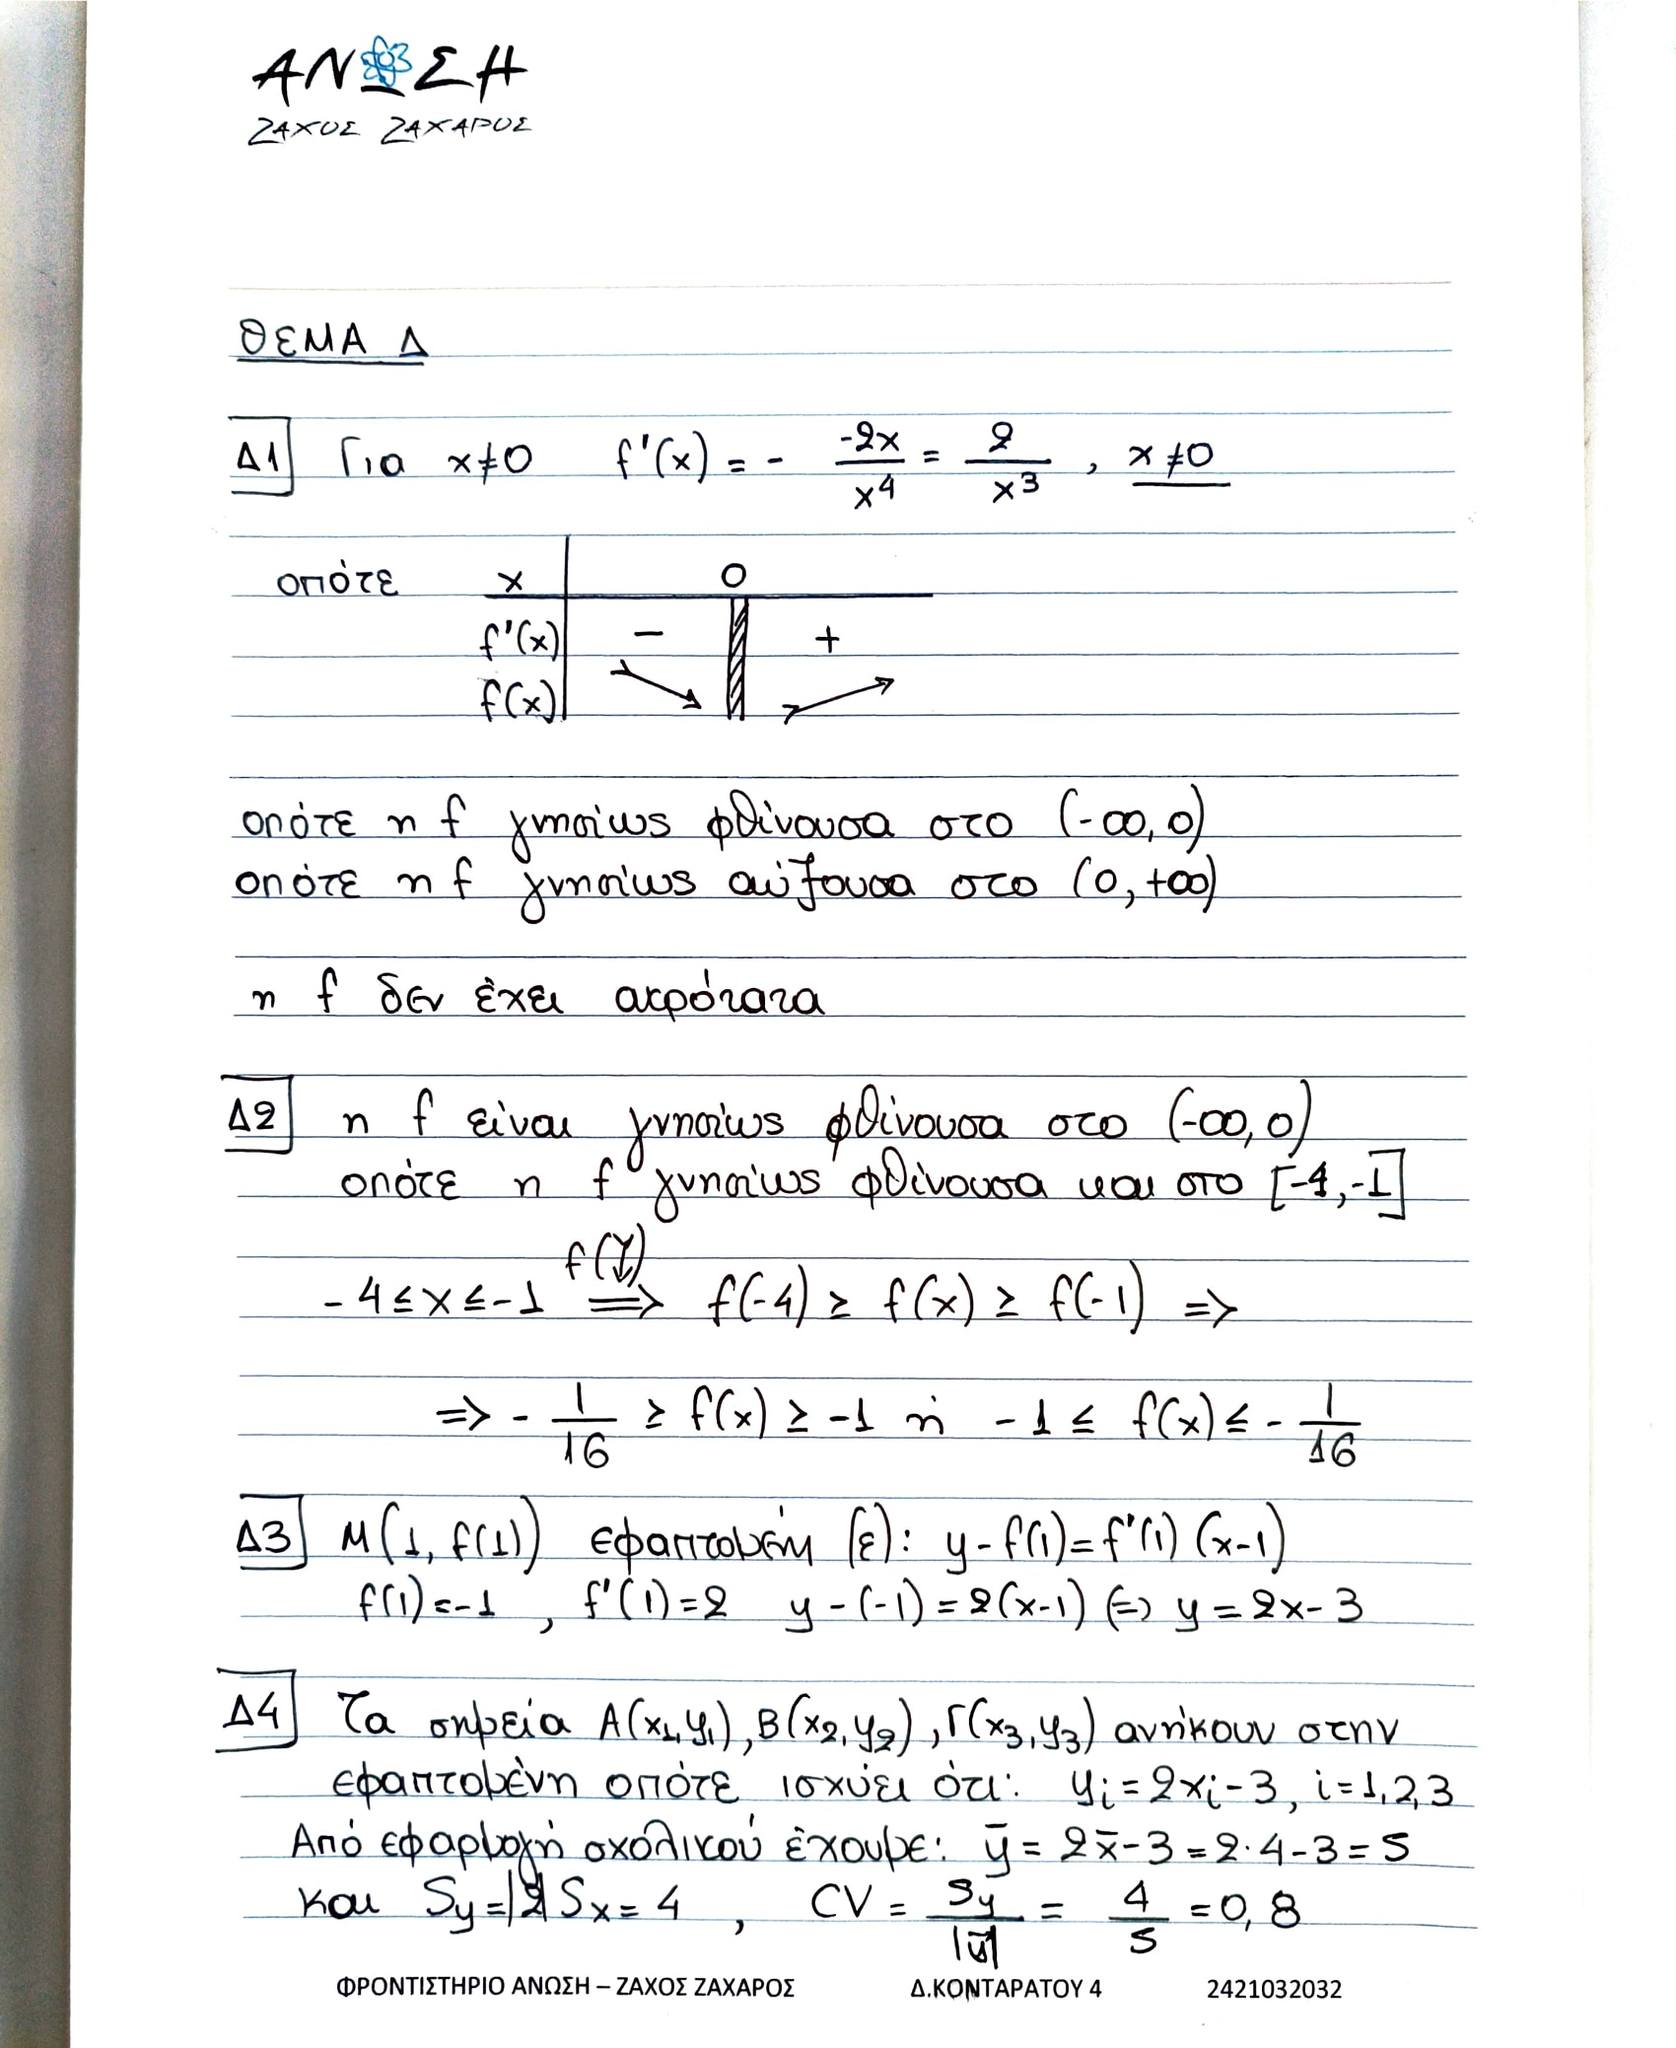 ΑΝΩΣΗ
ΖΑΧΟΣ ΖΑΧΑΡΟΣ
ΘΕΜΑ Δ
Δ1 Για x≠0 f'(x) = - -2x/x^4 = 2/x^3 , x≠0
οπότε x 0
f'(x) - +
f(x)
οπότε η f γνησίως φθίνουσα στο (-∞,0)
οπότε η f γνησίως αύξουσα στο (0,+∞)
η f δεν έχει ακρότατα
Δ2 η f είναι γνησίως φθίνουσα στο (-∞,0)
οπότε η f γνησίως φθίνουσα και στο [-4,-1]
f(↓)
-4≤x≤-1 => f(-4) ≥ f(x) ≥ f(-1) =>
=> - 1/16 ≥ f(x) ≥ -1 ή -1 ≤ f(x) ≤ - 1/16
Δ3 M(1, f(1)) εφαπτομένη (ε): y-f(1)=f'(1)(x-1)
f(1)=-1 , f'(1)=2 y-(-1)=2(x-1) (=> y=2x-3
Δ4 Τα σημεία A(x1,y1), B(x2,y2), Γ(x3,y3) ανήκουν στην
εφαπτομένη οπότε ισχύει ότι: yi=2xi-3, i=1,2,3
Από εφαρμογή σχολικού έχουμε: ȳ = 2x̄-3 = 2·4-3 = 5
και Sy=|2|Sx=4 , CV = Sy/|ȳ| = 4/5 = 0,8
ΦΡΟΝΤΙΣΤΗΡΙΟ ΑΝΩΣΗ – ΖΑΧΟΣ ΖΑΧΑΡΟΣ Δ.ΚΟΝΤΑΡΑΤΟΥ 4 2421032032